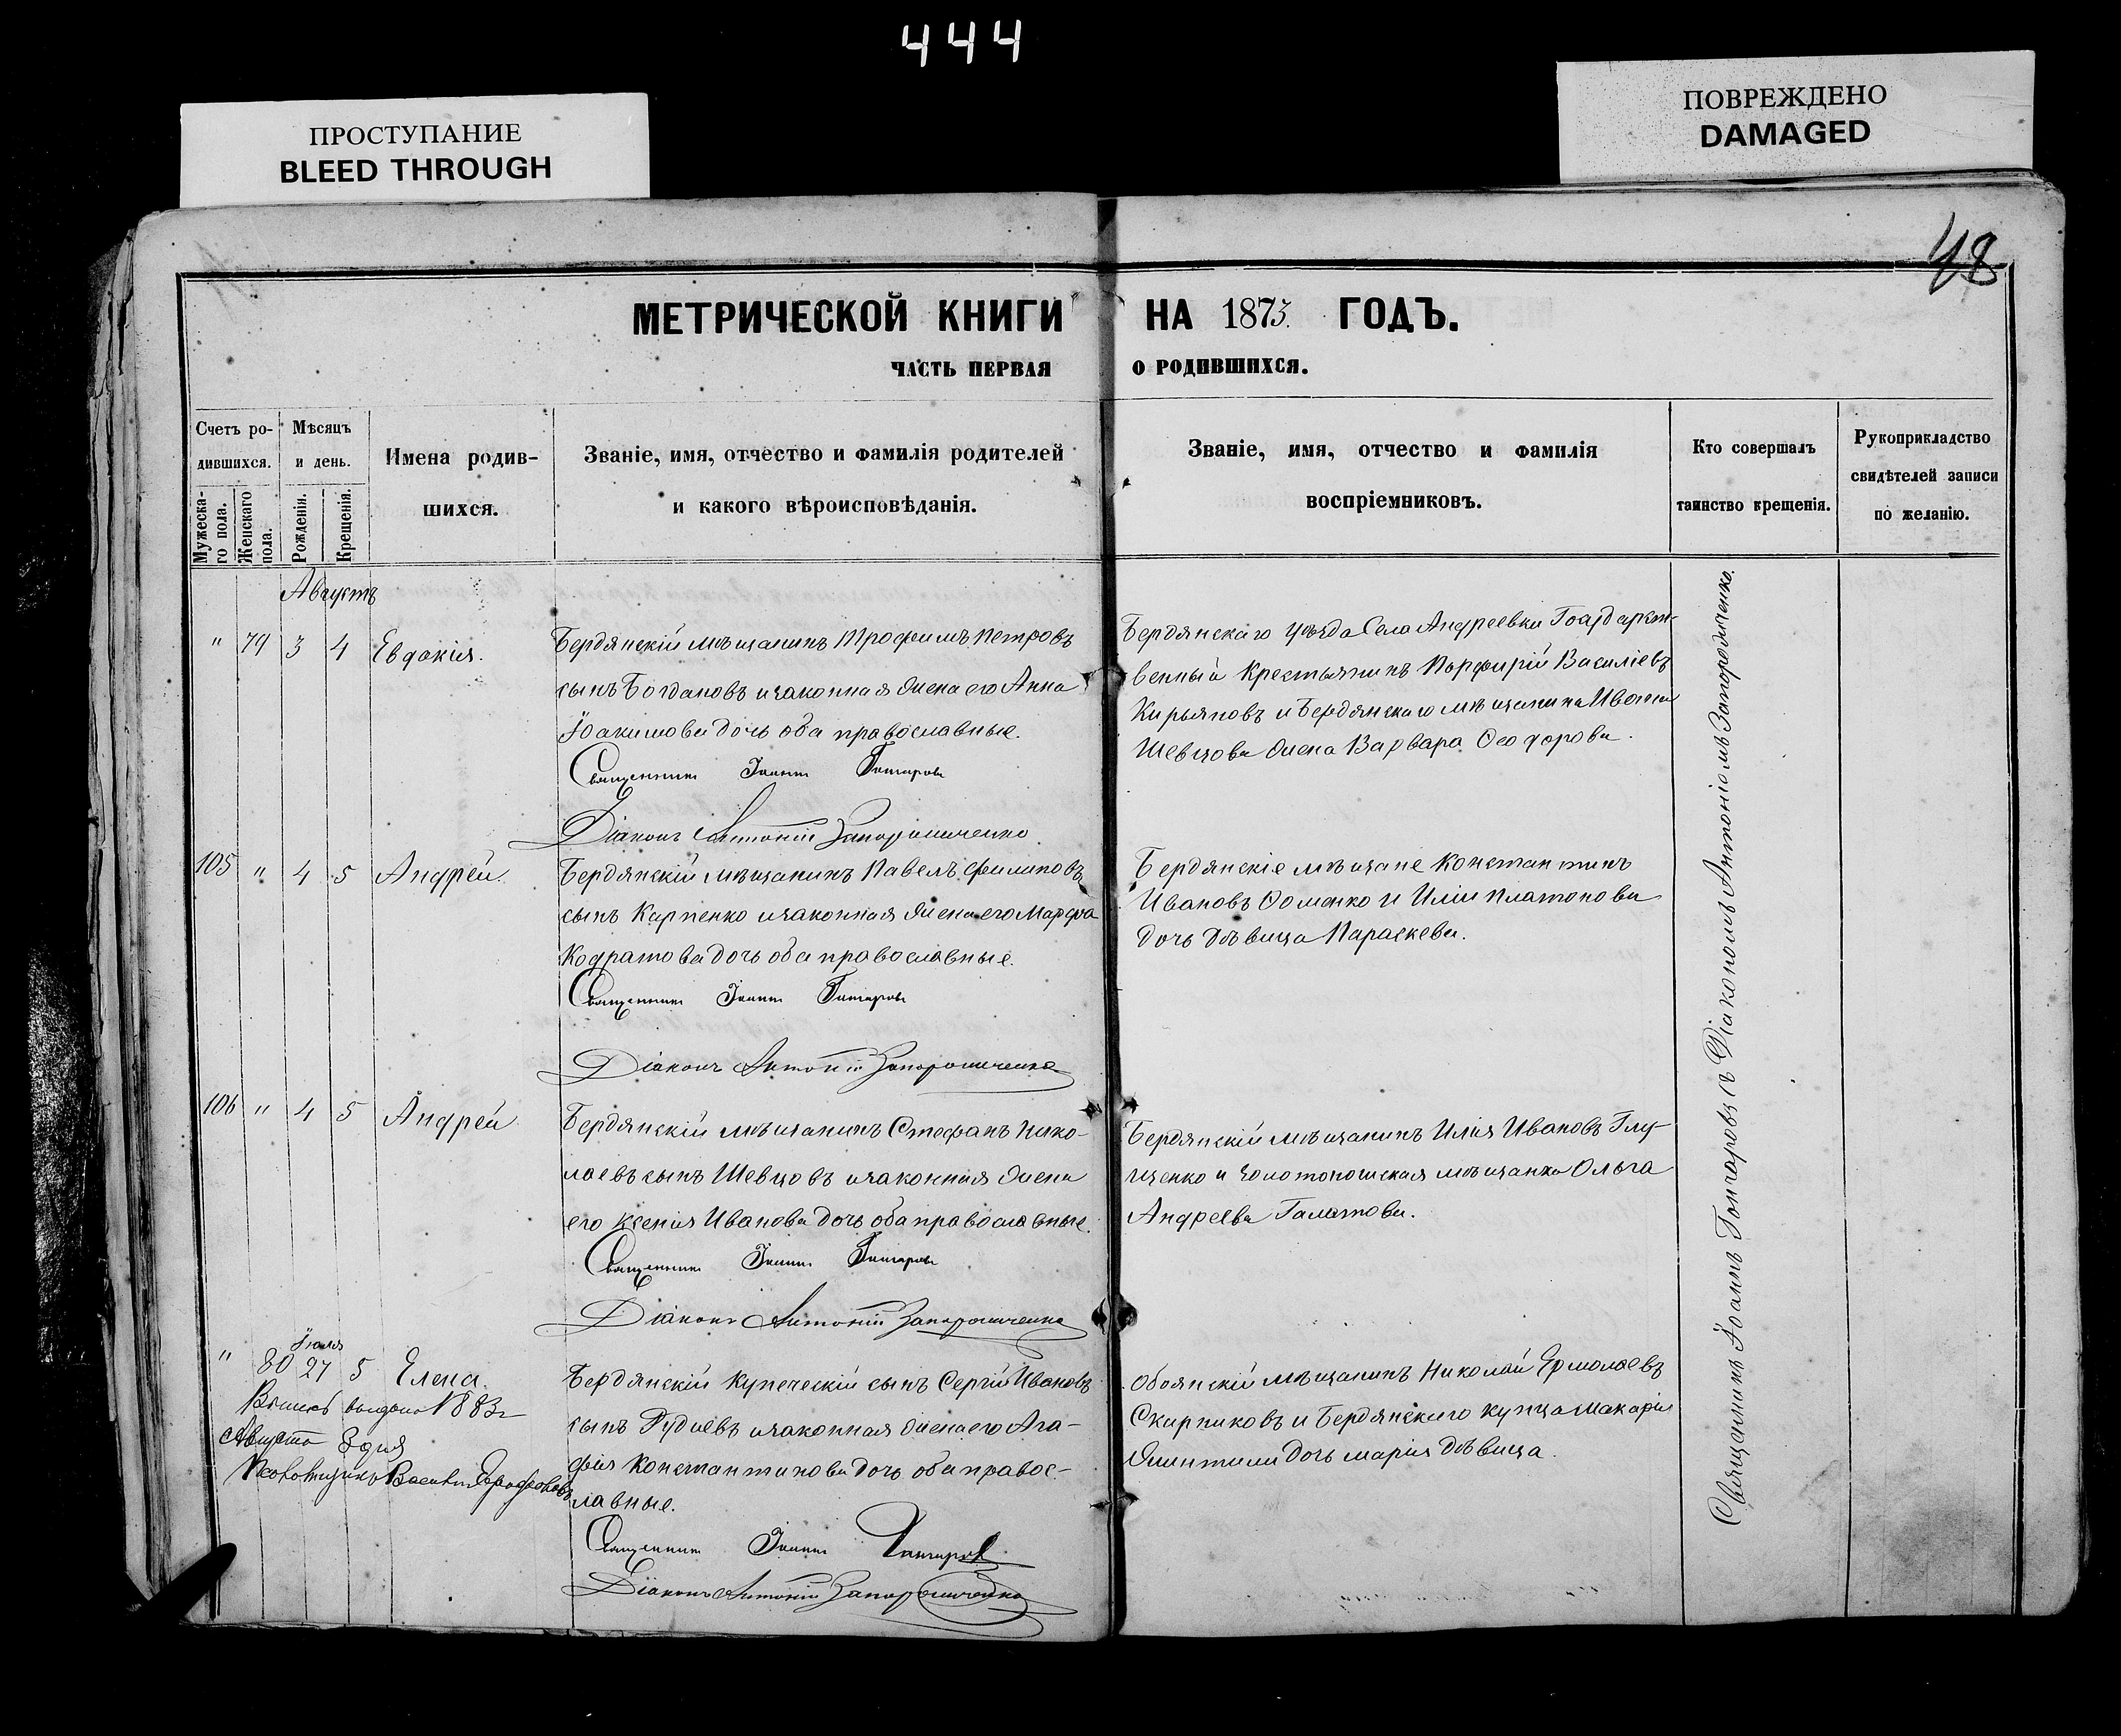 444
ПРОСТУПАНИЕ
BLEED THROUGH
ПОВРЕЖДЕНО
DAMAGED
48
МЕТРИЧЕСКОЙ КНИГИ НА 1873 ГОДЪ.
ЧАСТЬ ПЕРВАЯ О РОДИВШИХСЯ.
Счетъ ро-
дившихся.
Мужеска-
го пола.
Женскаго
пола.
Мѣсяцъ
и день.
Рожденія.
Крещенія.
Имена родив-
шихся.
Званіе, имя, отчество и фамилія родителей
и какого вѣроисповѣданія.
Званіе, имя, отчество и фамилія
воспріемниковъ.
Кто совершалъ
таинство крещенія.
Рукоприкладство
свидѣтелей записи
по желанію.
Августъ
" 79 3 4 Евдокія.
Бердянскій мѣщанинъ Трофимъ Петровъ
сынъ Богдановъ и законная жена его Анна
Іоакимова дочь оба православные.
Священникъ Іоаннъ Гончаровъ
Діаконъ Антоній Запорожченко
Бердянскаго уѣзда Села Андреевки Государст-
венный Крестьянинъ Порфирій Василіевъ
Кирьяновъ и Бердянскаго мѣщанина Ивана
Шевцова жена Варвара Ѳеодорова.
105 " 4 5 Андрей.
Бердянскій мѣщанинъ Павелъ Филиповъ
сынъ Карпенко и законная жена его Марфа
Кодратова дочь оба православные.
Священникъ Іоаннъ Гончаровъ
Діаконъ Антоній Запорожченко
Бердянскіе мѣщане Константинъ
Ивановъ Ѳоменко и Иліи Платонова
дочь дѣвица Параскева.
106 " 4 5 Андрей
Бердянскій мѣщанинъ Стефанъ Нико-
лаевъ сынъ Шевцовъ и законная жена
его Ксенія Иванова дочь оба православные.
Священникъ Іоаннъ Гончаровъ
Діаконъ Антоній Запорожченко
Бердянскій мѣщанинъ Илія Ивановъ Глу-
щенко и Золотоношская мѣщанка Ольга
Андреева Галатова.
Іюля
" 80 27 5 Елена.
выдано 1883 г
Августа 8 дня
Василій
Бердянскій купеческій сынъ Сергій Ивановъ
сынъ Рудиевъ и законная жена его Ага-
фія Константинова дочь оба правос-
лавные.
Священникъ Іоаннъ Гончаровъ
Діаконъ Антоній Запорожченко
Обоянскій мѣщанинъ Николай Ермолаевъ
Скирниковъ и Бердянскаго купца Макарія
дочь Марія дѣвица.
Священникъ Іоаннъ Гончаровъ съ Діакономъ Антоніемъ Запорожченко.